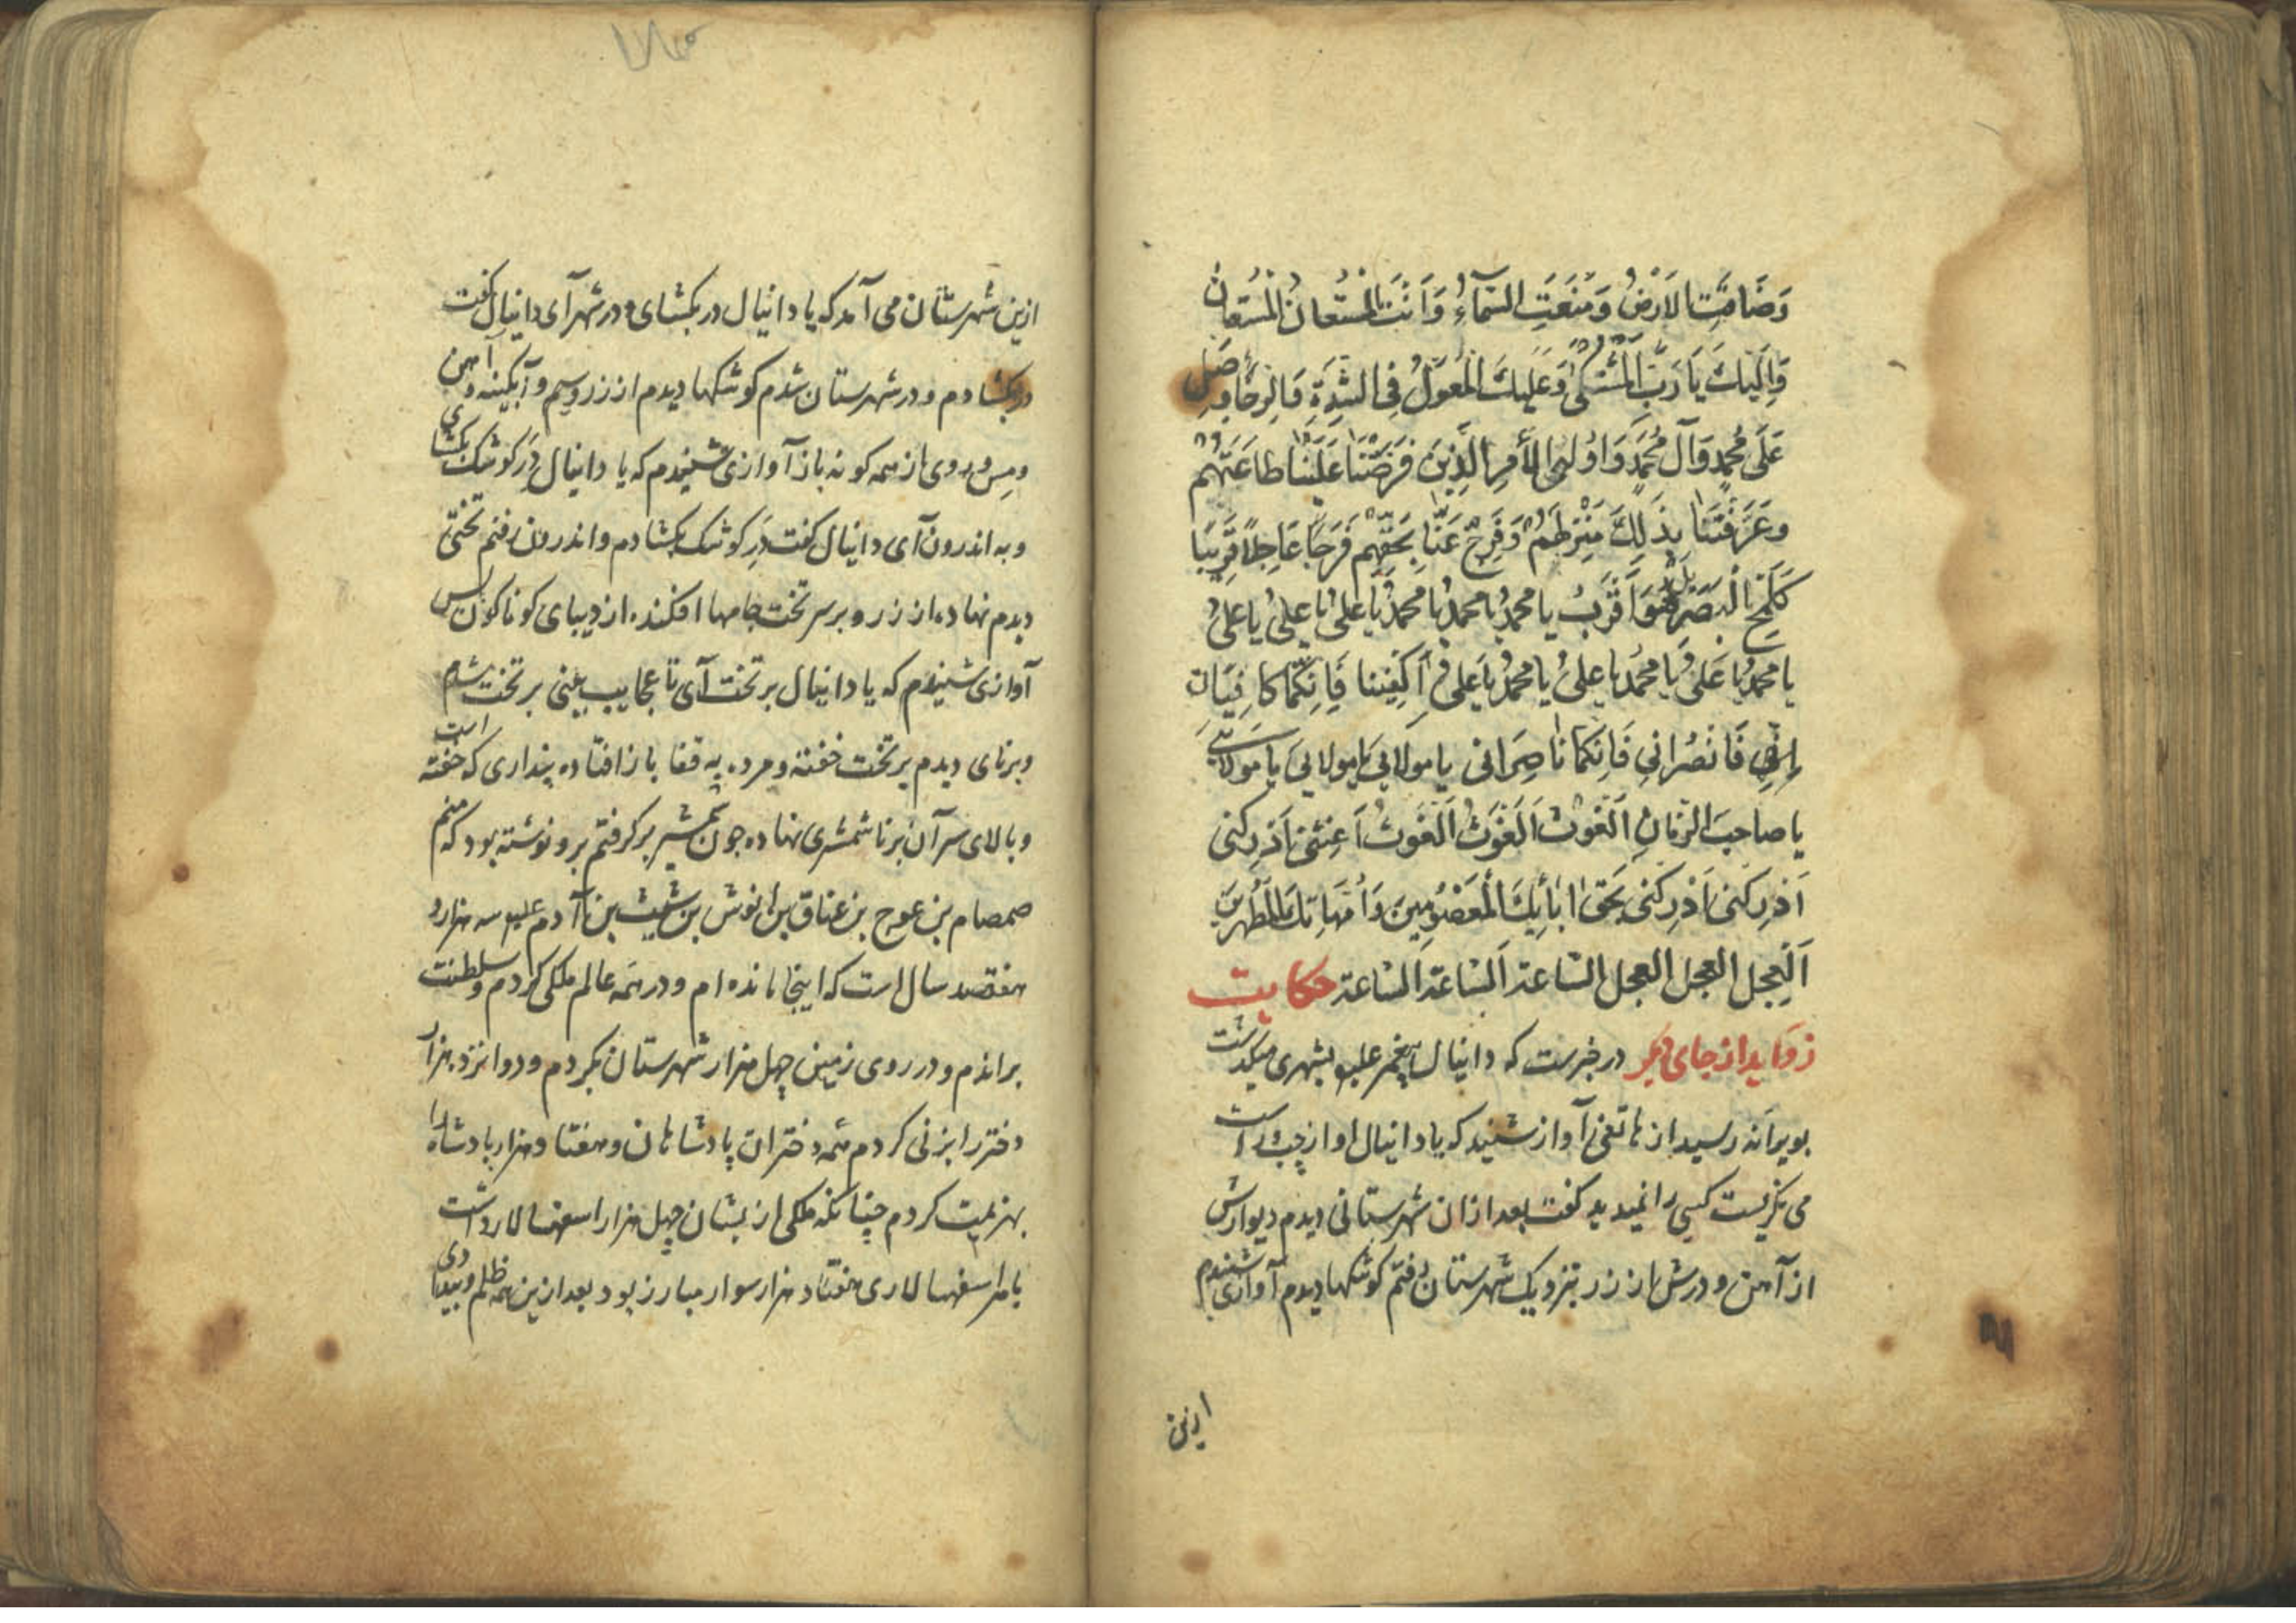 وَضَاقَتِ الاَرْضُ وَمُنِعَتِ السَّمَآءُ وَاَنْتَ الْمُسْتَعَانُ الْمُسْتَعَانُ
وَاِلَيْكَ يَا رَبِّ الْمُشْتَكىٰ وَعَلَيْكَ الْمُعَوَّلُ فِى الشِّدَّةِ وَالرَّخَاءِ صَلِّ
عَلَى مُحَمَّدٍ وَآلِ مُحَمَّدٍ وَاُولِى الْأَمْرِ الَّذِينَ فَرَضْتَنَا عَلَيْنَا طَاعَتَهُمْ
وعَرَّفْتَنَا بِذَلِكَ مَنْزِلَهُمْ وَفَرِّجْ عَنَّا بِحَقِّهِمْ فَرَجًا عَاجِلًا قَرِيبًا
كَلَمْحِ الْبَصَرِ بل هُوَ اَقْرَبُ يا محمدُ يا محمدُ يا محمدُ يا علىُ يا علىُ يا علىُ
يا محمدُ يا عَلىُ يا محمدُ يا علىُ يا محمدُ يا عَلىُ اَكْفِيننا فَاِنَّكُمَا كَافِيَانِ
فَانْصُرَانِي فَاِنَّكُمَا نَاصِرَانى يا مولايَ يا مولايَ يا مولايَ
يا صاحِبَ الزَّمَانِ اَلْغَوْثُ اَلْغَوْثُ اَلْغَوْثُ اَغِثْنى اَدْرِكنى
اَدْرِكنى اَدْرِكنى بِحَقِ ابَائِكَ الْمَعْصُومِينَ وَاُمَّهَاتِكَ الْمُطَهَّرِينَ
اَلْعِجل العجل العجل السّاعة اَلسّاعَة اَلسّاعة حکایت
زواید از جای دیگر در خبرست که دانیال پیغمبر علیه بشهری میکذشت
بویرانه رسید از هاتفی آواز شنید که یا دانیال او از چپ و راست
می نکریست کسی را نمیدید کفت بعد از ان شهرستانی دیدم دیوارش
از آهن و درش از زر بنزدیک شهرستان رفتم کوشکها دیدم آوازی شنیدم
ازین
ازین شهرستان می آمد که یا دانیال در بکشای و در شهر آی دانیال کفت
در بکشادم و در شهرستان شدم کوشکها دیدم از زر و سیم و آبکینه و آهن
و مس و روی از همه کونه باز آوازی شنیدم که یا دانیال دَرِ کوشک بکشای
و به اندرون آی دانیال کفت دَرِ کوشک بکشادم و اندرون رفتم تختی
دیدم نهاده از زر و بر سر تخت جامها افکنده از دیبای کوناکون پس
آوازی شنیدم که یا دانیال بر تخت آی تا عجایب بینی بر تخت شدم
و برنای دیدم بر تخت خفته و مرده به قفا باز افتاده پنداری که خفته است
و بالای سر آن برنا شمشیری نهاده چون شمشیر بر کرفتم برو نوشته بود که منم
صمصام بن عوج بن عناق بن انوش بن شیث بن آدم علیه سه هزار و
هفتصد سال است که اینجا مانده ام و در همه عالم ملکی کردم و سلطنت
براندم و در روی زمین چهل هزار شهرستان بکردم و دوانزده هزار
دختر را بزنی کردم همه دختران پادشاهان و هفتاد هزار پادشاه را
بهزیمت کردم چنانکه ملکی از یشان چهل هزار اسفهسالار داشت
با هر اسفهسالاری هفتاد هزار سوار مبارز بود بعد ازین همه ظلم و بیدادی